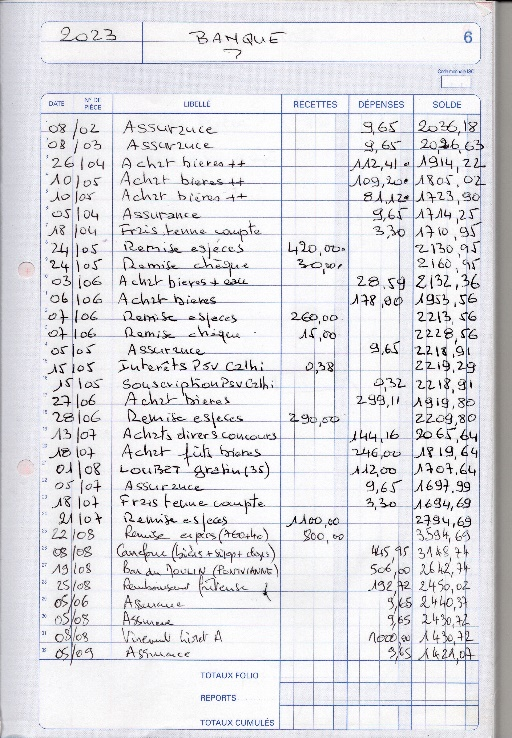 2023 BANQUE 6
DATE N° DE PIÈCE LIBELLÉ RECETTES DÉPENSES SOLDE
08/02 Assurance 9,65 2036,18
08/03 Assurance 9,65 2026,63
26/04 Achat bieres ++ 112,41 1914,22
10/05 Achat bieres ++ 109,20 1805,02
10/05 Achat bières ++ 81,12 1723,90
05/04 Assurance 9,65 1714,25
18/04 Frais tenue compte 3,30 1710,95
24/05 Remise espèces 420,00 2130,95
24/05 Remise chèque 30,00 2160,95
03/06 Achat bieres + eau 28,59 2132,36
06/06 Achat bieres 178,80 1953,56
07/06 Remise especes 260,00 2213,56
07/06 Remise chèque 15,00 2228,56
05/05 Assurance 9,65 2218,91
15/05 Interêts Psv Calhi 0,38 2219,29
15/05 Souscription Psv Calhi 0,32 2218,91
27/06 Achat bières 299,11 1919,80
28/06 Remise especes 290,00 2209,80
13/07 Achats divers concours 144,16 2065,64
18/07 Achat fûts bières 246,00 1819,64
01/08 LOUBET gratin (35) 112,00 1707,64
05/07 Assurance 9,65 1697,99
18/07 Frais tenue compte 3,30 1694,69
21/07 Remise espèces 1100,00 2794,69
22/08 Remise espèces (760+40) 800,00 3594,69
08/08 Carrefour 445,95 3148,74
19/08 Bar du MOULIN 506,00 2642,74
25/08 Remboursement 192,72 2450,02
05/06 Assurance 9,65 2440,37
05/08 Assurance 9,65 2430,72
08/08 Virement Livret A 1000,00 1430,72
05/09 Assurance 9,65 1421,07
TOTAUX FOLIO
REPORTS
TOTAUX CUMULÉS